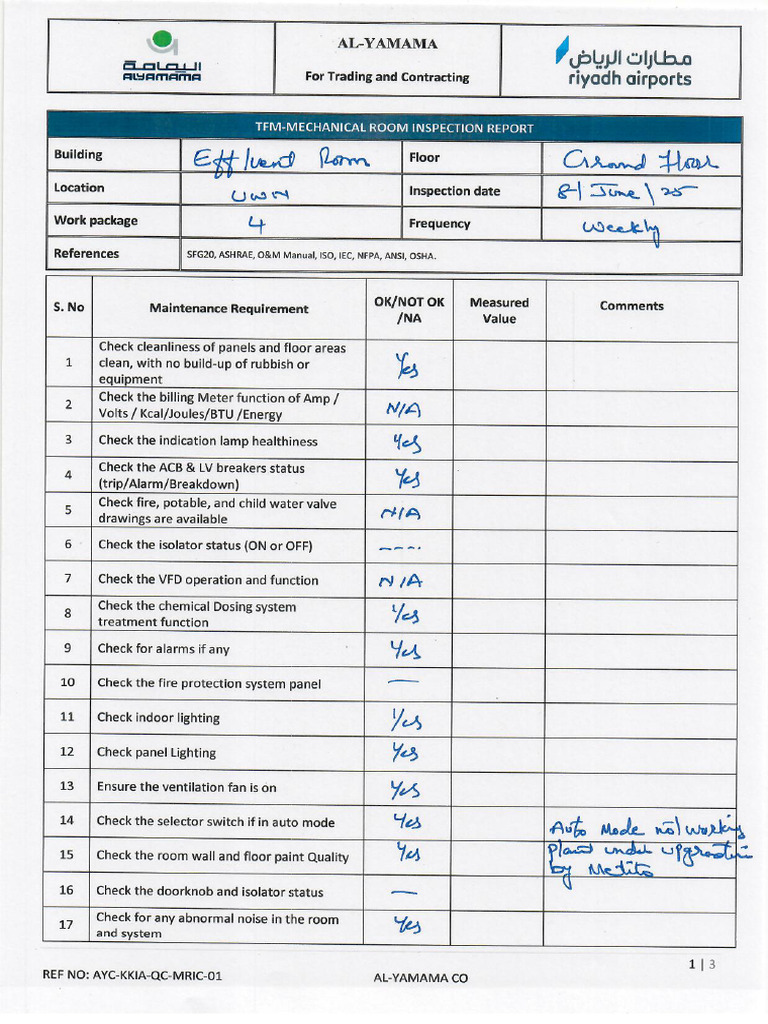 اليمامة
ALYAMAMA
AL-YAMAMA
For Trading and Contracting
مطارات الرياض
riyadh airports
TFM-MECHANICAL ROOM INSPECTION REPORT
Building Effluent Room Floor Ground Floor
Location UWN Inspection date 8/June/25
Work package 4 Frequency Weekly
References SFG20, ASHRAE, O&M Manual, ISO, IEC, NFPA, ANSI, OSHA.
S. No Maintenance Requirement OK/NOT OK /NA Measured Value Comments
1 Check cleanliness of panels and floor areas clean, with no build-up of rubbish or equipment Yes
2 Check the billing Meter function of Amp / Volts / Kcal/Joules/BTU /Energy N/A
3 Check the indication lamp healthiness Yes
4 Check the ACB & LV breakers status (trip/Alarm/Breakdown) Yes
5 Check fire, potable, and child water valve drawings are available N/A
6 Check the isolator status (ON or OFF) ----
7 Check the VFD operation and function N/A
8 Check the chemical Dosing system treatment function Yes
9 Check for alarms if any Yes
10 Check the fire protection system panel —
11 Check indoor lighting Yes
12 Check panel Lighting Yes
13 Ensure the ventilation fan is on Yes
14 Check the selector switch if in auto mode Yes Auto Mode not working
15 Check the room wall and floor paint Quality Yes plant under upgradation by Metito
16 Check the doorknob and isolator status —
17 Check for any abnormal noise in the room and system Yes
1 | 3
REF NO: AYC-KKIA-QC-MRIC-01 AL-YAMAMA CO